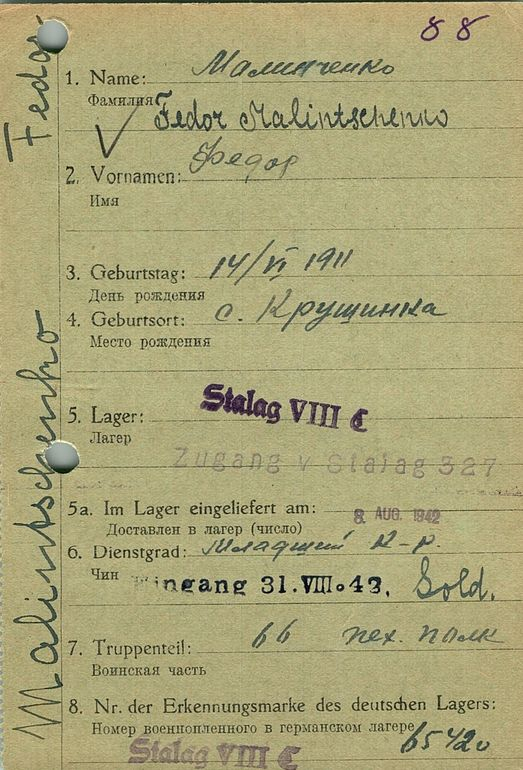 88
Malintschenko Fedor
1. Name: Малинченко
Фамилия Fedor Malintschenko
2. Vornamen: Федор
Имя
3. Geburtstag: 14/VI 1911
День рождения
4. Geburtsort: с. Крущинка
Место рождения
5. Lager: Stalag VIII C
Лагер
Zugang v Stalag 327
5a. Im Lager eingeliefert am: 8. AUG. 1942
Доставлен в лагер (число)
6. Dienstgrad: Младший К-р.
Чин Eingang 31.VIII.43. Sold.
7. Truppenteil: 66 пех. полк
Воинская часть
8. Nr. der Erkennungsmarke des deutschen Lagers:
Номер военнопленного в германском лагере 65420
Stalag VIII C